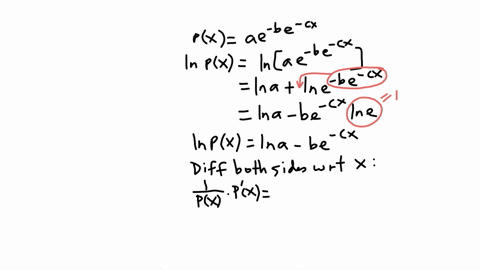 P(x) = ae^{-be^{-cx}}
ln P(x) = ln[ae^{-be^{-cx}}]
= ln a + ln e^{-be^{-cx}}
= ln a - be^{-cx} ln e = 1
ln P(x) = ln a - be^{-cx}
Diff both sides wrt x :
1/P(x) · P'(x) =